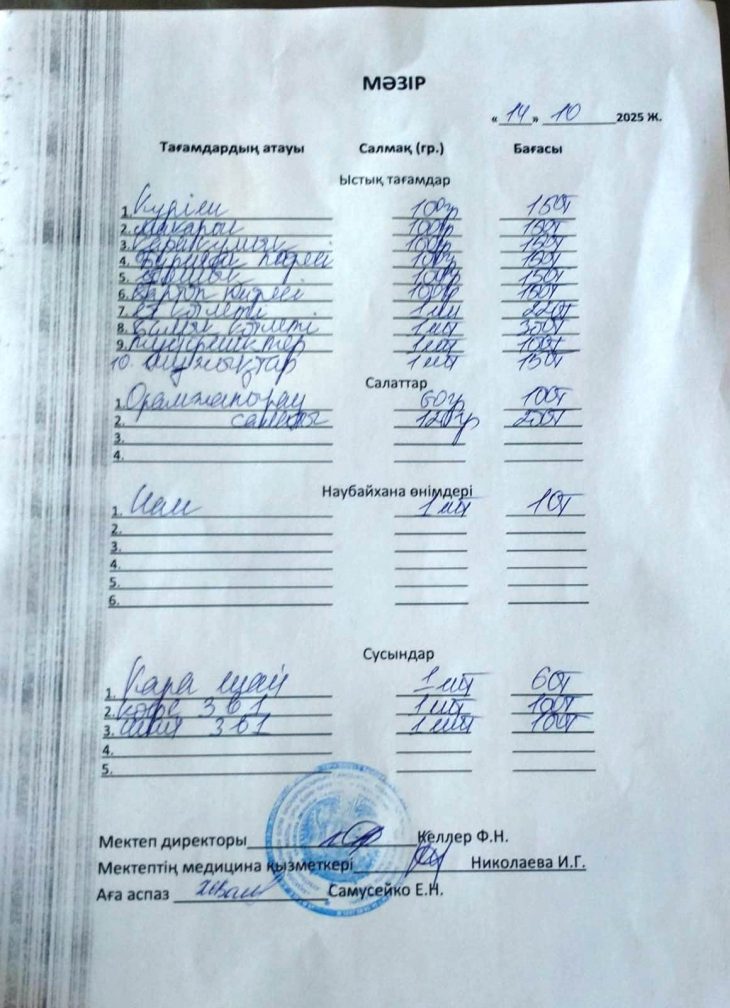 МӘЗІР
«14» 10 2025 Ж.
Тағамдардың атауы Салмақ (гр.) Бағасы
Ыстық тағамдар
1. Күріш 100гр 150т
2. Макарон 100гр 150т
3. Қарақұмық 100гр 150т
4. Бұршақ пюресі 100гр 150т
5. 100гр 150т
6. Картоп пюресі 100гр 150т
7. Ет котлеті 1 шт 220т
8. Балық котлеті 1 шт 300т
9. 1 шт 100т
10. Шұжықтар 1 шт 150т
Салаттар
1. Орамжапырақ 60гр 100т
2. салаты 120гр 200т
3.
4.
Наубайхана өнімдері
1. Нан 1 шт 10т
2.
3.
4.
5.
6.
Сусындар
1. Қара шай 1 шт 60т
2. кофе 3 в 1 1 шт 100т
3. шай 3 в 1 1 шт 100т
4.
5.
Мектеп директоры Келлер Ф.Н.
Мектептің медицина қызметкері Николаева И.Г.
Аға аспаз Самусейко Е.Н.